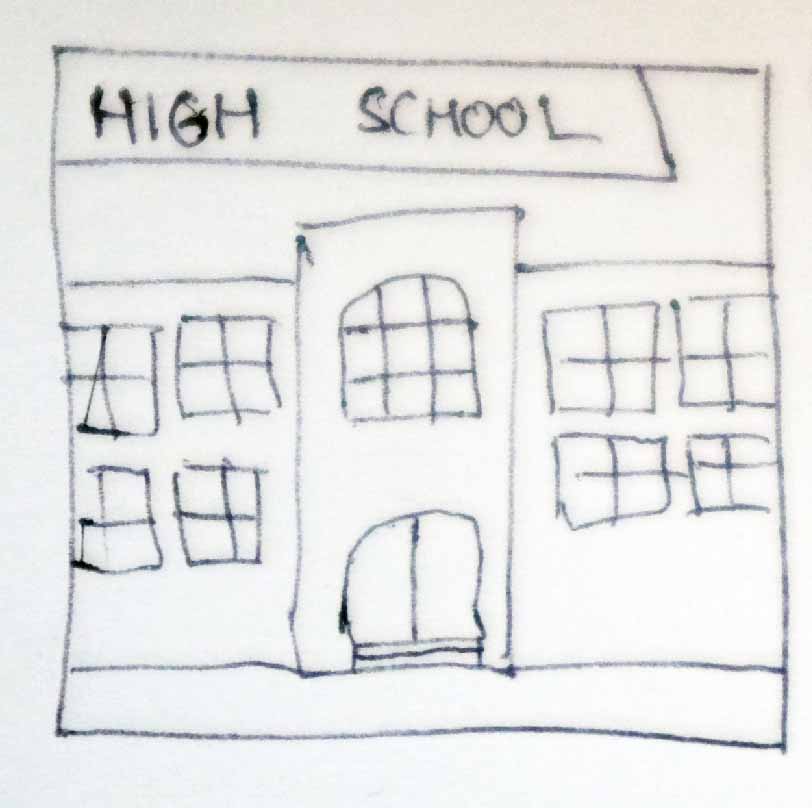 HIGH SCHOOL